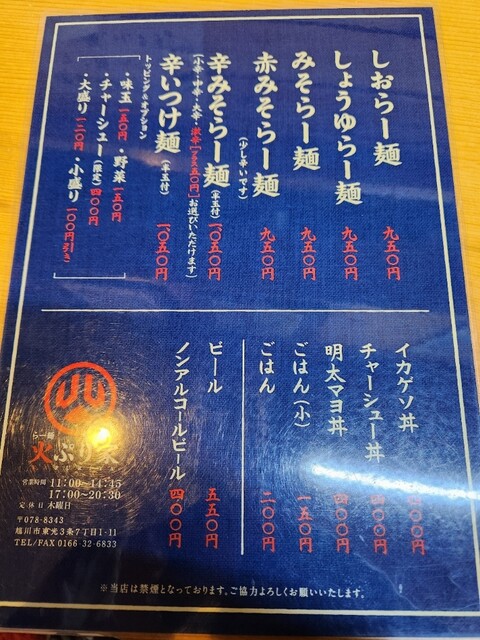 しおらー麺 九五〇円
しょうゆらー麺 九五〇円
みそらー麺 九五〇円
赤みそらー麺 九五〇円
(少し辛いです)
辛みそらー麺(半玉付) 一〇五〇円
(小辛・中辛・大辛・激辛「プラス五〇円」お選びいただけます)
辛いつけ麺(半玉付) 一〇五〇円
トッピング&オプション
・味玉 一五〇円 ・野菜 一五〇円
・チャーシュー(限定) 四〇〇円
・大盛り 一二〇円 ・小盛り 一〇〇円引き
イカゲソ丼 〇〇円
チャーシュー丼 四〇〇円
明太マヨ丼 四〇〇円
ごはん(小) 一五〇円
ごはん 二〇〇円
ビール 五五〇円
ノンアルコールビール 四〇〇円
らー麺
火ぷり家
営業時間 11:00~14:45
17:00~20:30
定休日 木曜日
〒078-8343
旭川市東光3条7丁目1-11
TEL/FAX 0166-32-6833
※当店は禁煙となっております。ご協力よろしくお願いいたします。